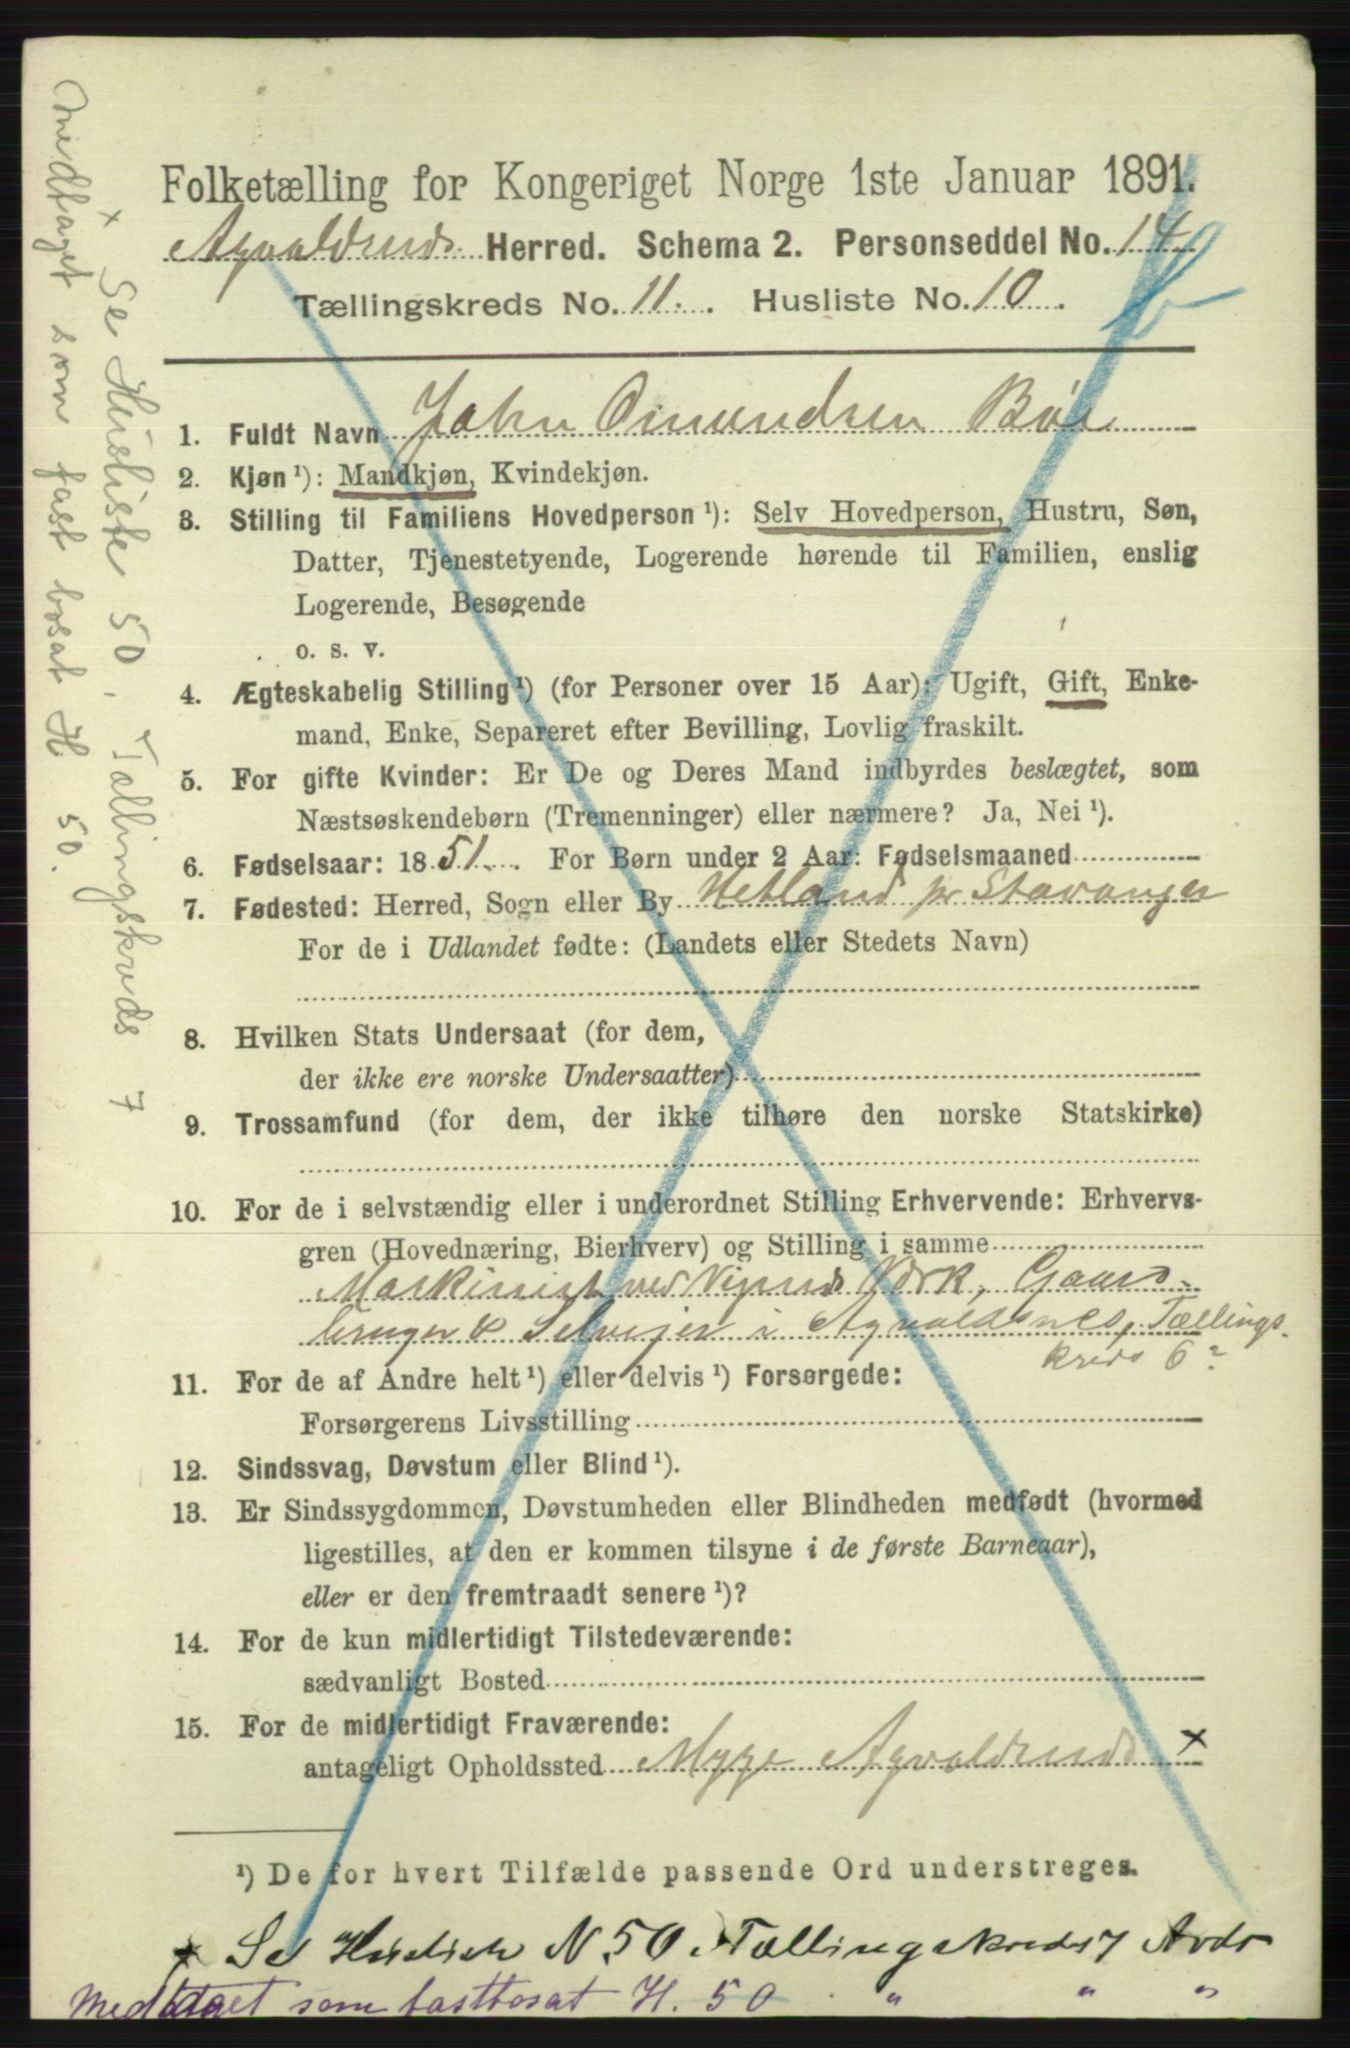 Folketælling for Kongeriget Norge 1ste Januar 1891.
Herred. Schema 2. Personseddel No. 14
Tællingskreds No. 11. Husliste No. 10.
1. Fuldt Navn John Omundsen Bøe
2. Kjøn ¹): Mandkjøn, Kvindekjøn.
3. Stilling til Familiens Hovedperson ¹): Selv Hovedperson, Hustru, Søn,
Datter, Tjenestetyende, Logerende hørende til Familien, enslig
Logerende, Besøgende
o. s. v.
4. Ægteskabelig Stilling ¹) (for Personer over 15 Aar): Ugift, Gift, Enke-
mand, Enke, Separeret efter Bevilling, Lovlig fraskilt.
5. For gifte Kvinder: Er De og Deres Mand indbyrdes beslægtet, som
Næstsøskendebørn (Tremenninger) eller nærmere? Ja, Nei ¹).
6. Fødselsaar: 1851. For Børn under 2 Aar: Fødselsmaaned
7. Fødested: Herred, Sogn eller By Hetland pr Stavanger
For de i Udlandet fødte: (Landets eller Stedets Navn)
8. Hvilken Stats Undersaat (for dem,
der ikke ere norske Undersaatter)
9. Trossamfund (for dem, der ikke tilhøre den norske Statskirke)
10. For de i selvstændig eller i underordnet Stilling Erhvervende: Erhvervs-
gren (Hovednæring, Bierhverv) og Stilling i samme
Maskinist ved Vigsnes Værk, Gaard-
bruger & Selveier i Agvaldsnes, Tællings-
kreds 6?
11. For de af Andre helt ¹) eller delvis ¹) Forsørgede:
Forsørgerens Livsstilling
12. Sindssvag, Døvstum eller Blind ¹).
13. Er Sindssygdommen, Døvstumheden eller Blindheden medfødt (hvormed
ligestilles, at den er kommen tilsyne i de første Barneaar),
eller er den fremtraadt senere ¹)?
14. For de kun midlertidigt Tilstedeværende:
sædvanligt Bosted
15. For de midlertidigt Fraværende:
antageligt Opholdssted Mygge ×
¹) De for hvert Tilfælde passende Ord understreges.
× Se Husliste N 50. Tællingskreds 7
Medtaget som fastbosat H. 50 " " "
× Se Husliste 50. Tællingskreds 7
medtaget som fast bosat H 50.